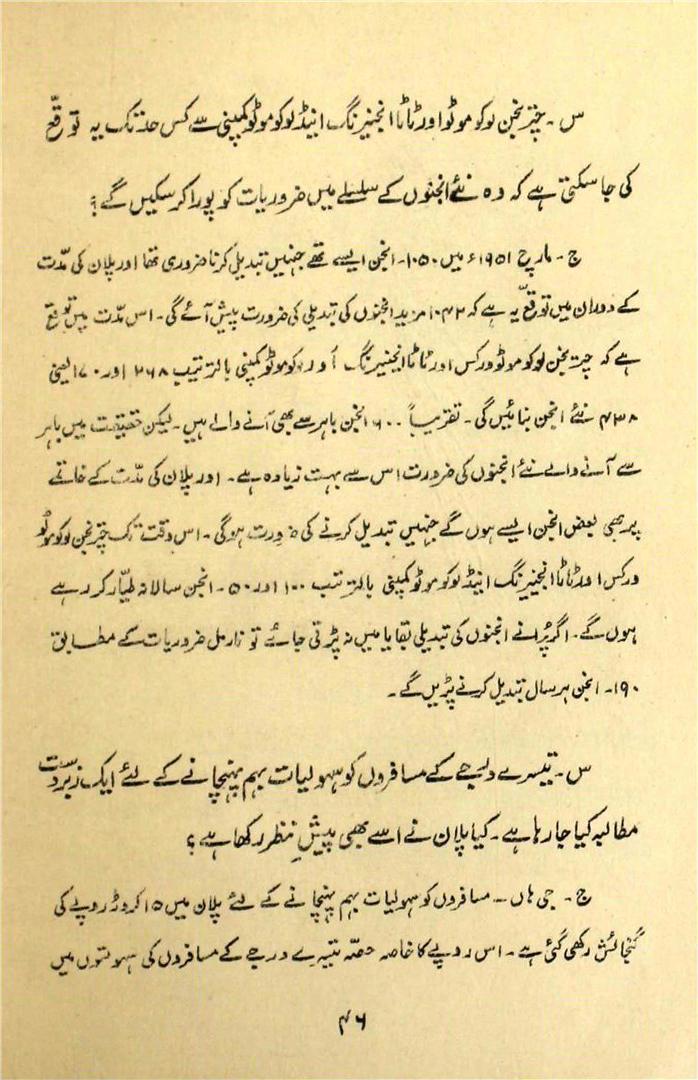 س۔ چترنجن لوکو موٹو اور ٹاٹا انجنیئرنگ اینڈ لوکوموٹو کمپنی سے کس حد تک یہ توقّع
کی جا سکتی ہے کہ وہ نئے انجنوں کے سلسلے میں ضروریات کو پورا کر سکیں گے؟
ج۔ مارچ ۱۹۵۱ء میں ۱۰۵۰۔ انجن ایسے تھے جنہیں تبدیل کرنا ضروری تھا اور پلان کی مدّت
کے دوران میں توقّع یہ ہے کہ ۱۰۴۲ مزید انجنوں کی تبدیلی کی ضرورت پیش آئے گی۔ اس مدّت میں توقع
ہے کہ چترنجن لوکوموٹو ورکس اور ٹاٹا انجینیرنگ اور لوکوموٹو کمپنی بالترتیب ۲۶۸ اور ۱۷۰ یعنی
۴۳۸ نئے انجن بنائیں گی۔ تقریباً ۶۰۰ انجن باہر سے بھی آنے والے ہیں۔ لیکن حقیقت میں باہر
سے آنے والے نئے انجنوں کی ضرورت اس سے بہت زیادہ ہے۔ اور پلان کی مدّت کے خاتمے
پر بھی بعض انجن ایسے ہوں گے جنہیں تبدیل کرنے کی ضرورت ہوگی۔ اس وقت تک چترنجن لوکوموٹو
ورکس اور ٹاٹا انجنیرنگ اینڈ لوکوموٹو کمپنی بالترتیب ۱۰۰ اور ۵۰۔ انجن سالانہ طیّار کر رہے
ہوں گے۔ اگر پُرانے انجنوں کی تبدیلی بقایا میں نہ پڑتی جائے تو نارمل ضروریات کے مطابق
۱۹۰۔ انجن ہر سال تبدیل کرنے پڑیں گے۔
س۔ تیسرے درجے کے مسافروں کو سہولیات بہم پہنچانے کے لئے ایک زبردست
مطالبہ کیا جا رہا ہے۔ کیا پلان نے اسے بھی پیشِ نظر رکھا ہے؟
ج۔ جی ہاں۔ مسافروں کو سہولیات بہم پہنچانے کے لئے پلان میں ۱۵ کروڑ روپے کی
گنجائش رکھی گئی ہے۔ اس روپے کا خاصہ حصّہ تیسرے درجے کے مسافروں کی سہولتوں میں
۴۶